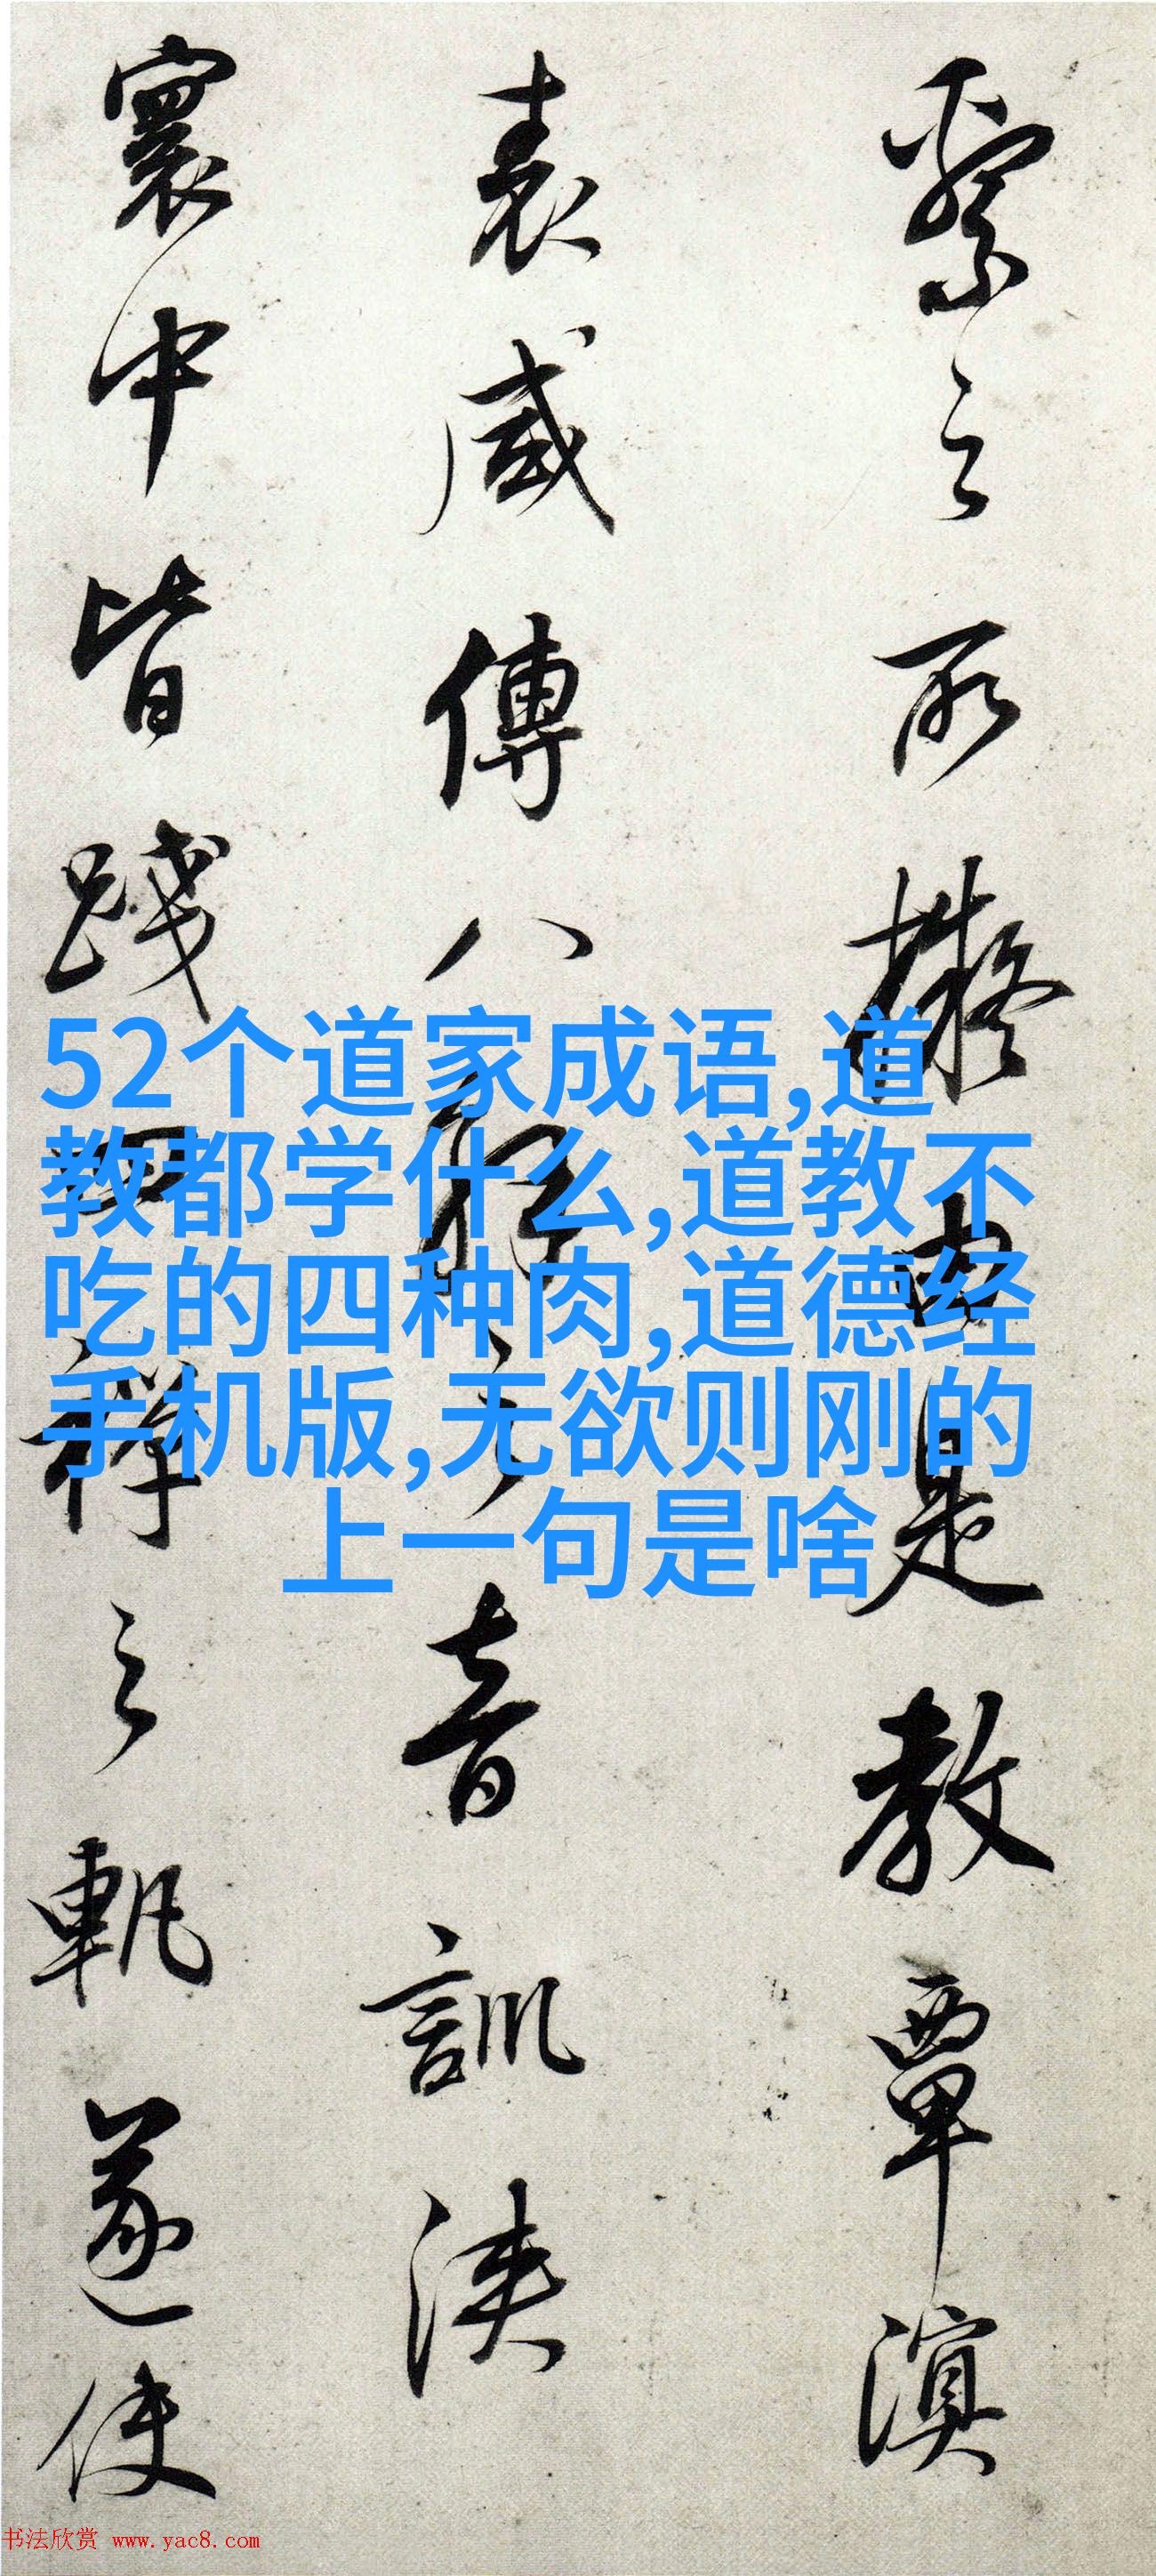 繫之所擬由是教覃溟
表咸傳八解之音訓浹
寰中皆踐四禪之軌遂使
52个道家成语,道
教都学什么,道教不
吃的四种肉,道德经
手机版,无欲则刚的
上一句是啥
书法欣赏 www.yac8.com